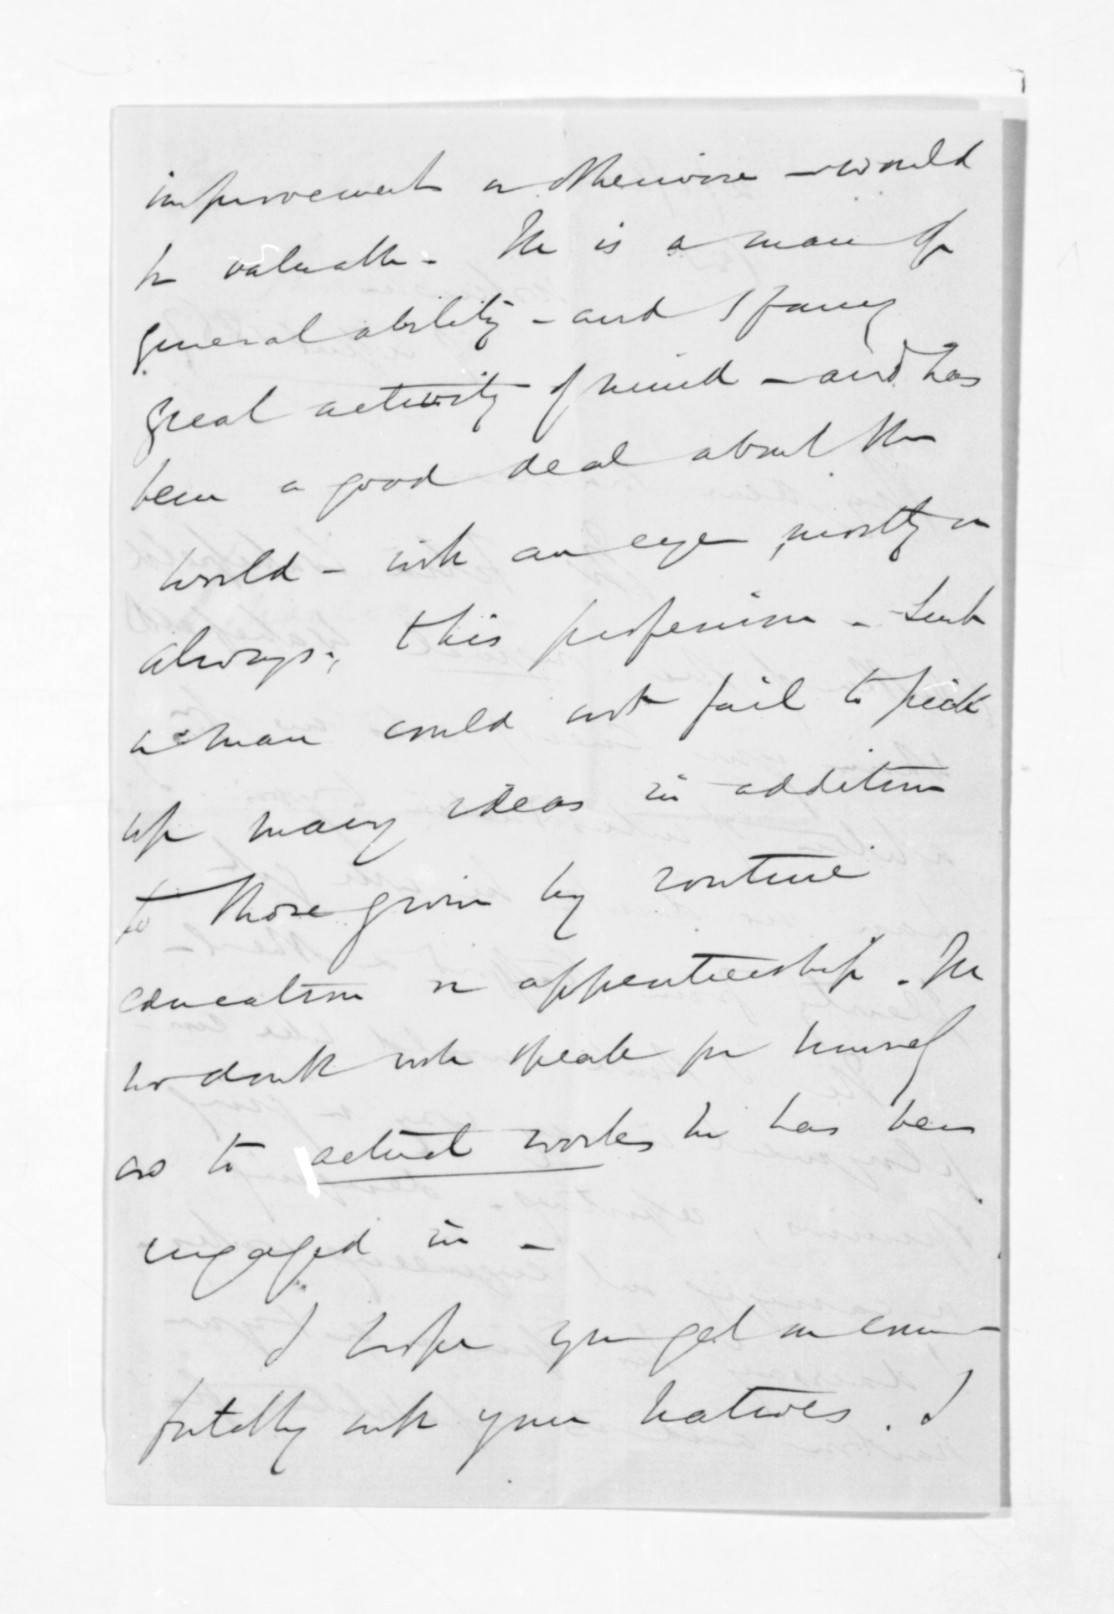 improvement or otherwise – would
be valuable – He is a man of
general ability – and I fancy
great activity of mind – and has
been a good deal about the
world – with an eye, mostly or
always, this profession – Such
a man could not fail to pick
up many ideas in addition
to those given by routine
education or apprenticeship. He
no doubt will speak for himself
as to actual works he has been
engaged in –
I hope you get on com-
fortably with your natives. I